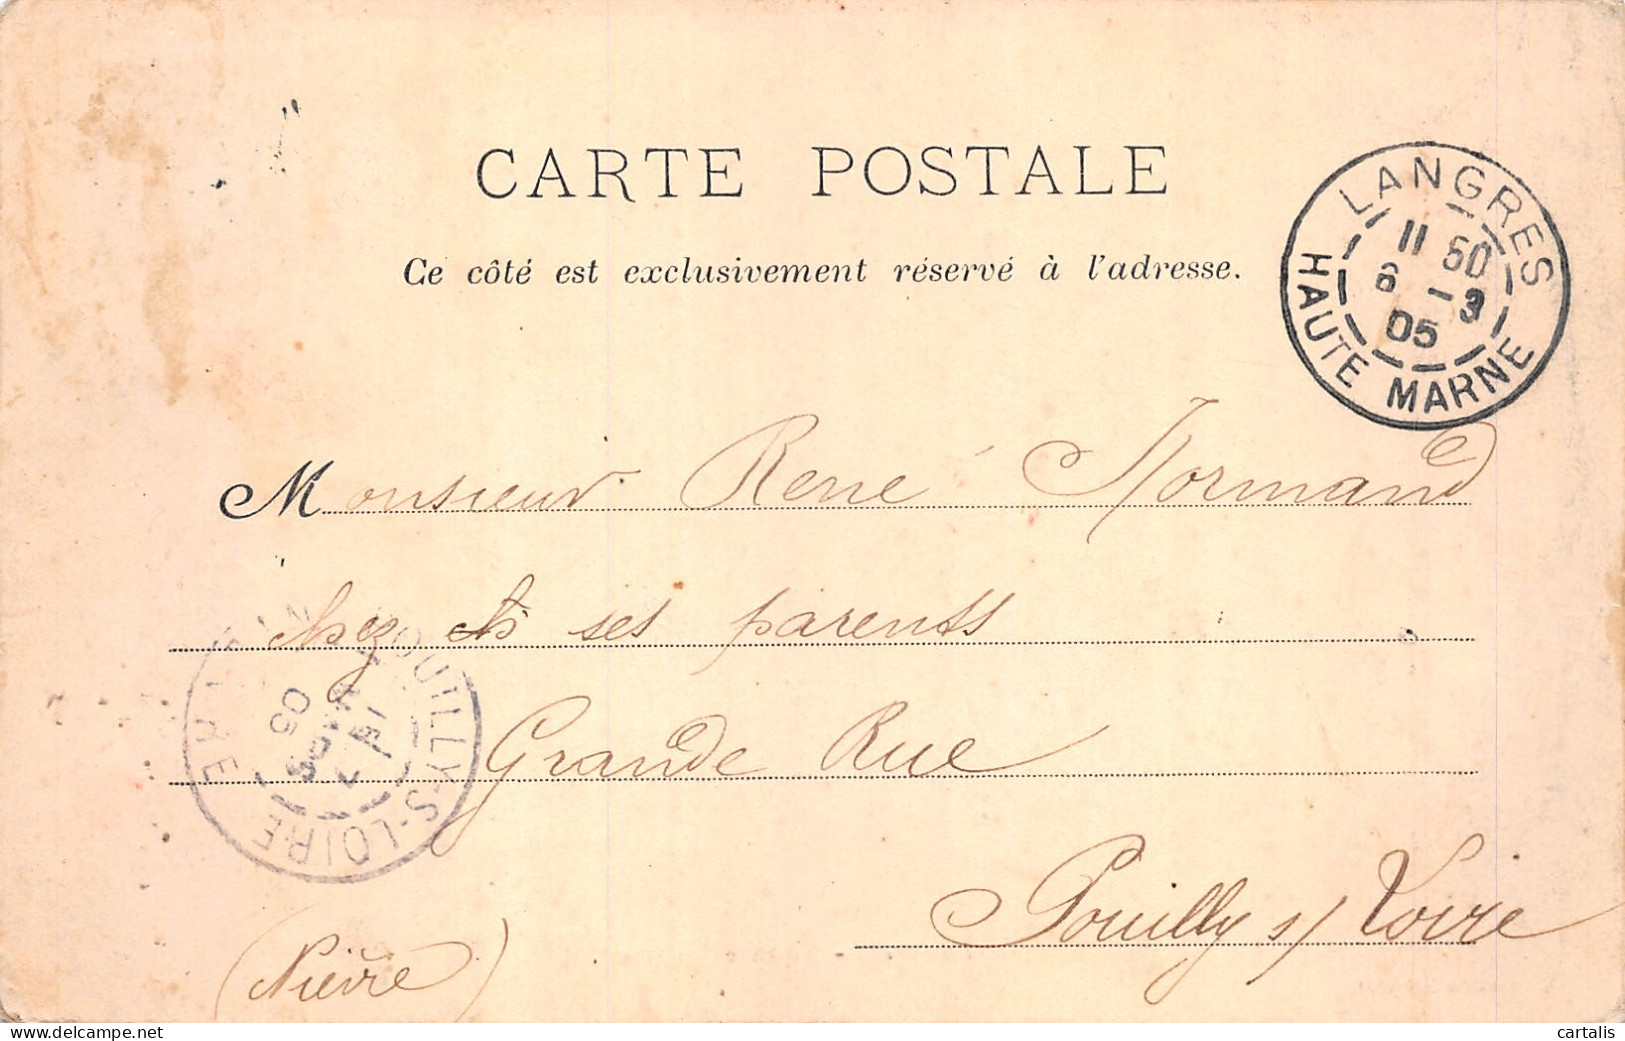 CARTE POSTALE
Ce côté est exclusivement réservé à l'adresse.
LANGRES
11 50
6 - 3
05
HAUTE MARNE
Monsieur René Normand
chez ses parents
Grande Rue
Pouilly s/ Loire
(Nièvre)
POUILLY-S-LOIRE
05
delcampe.net
cartalis